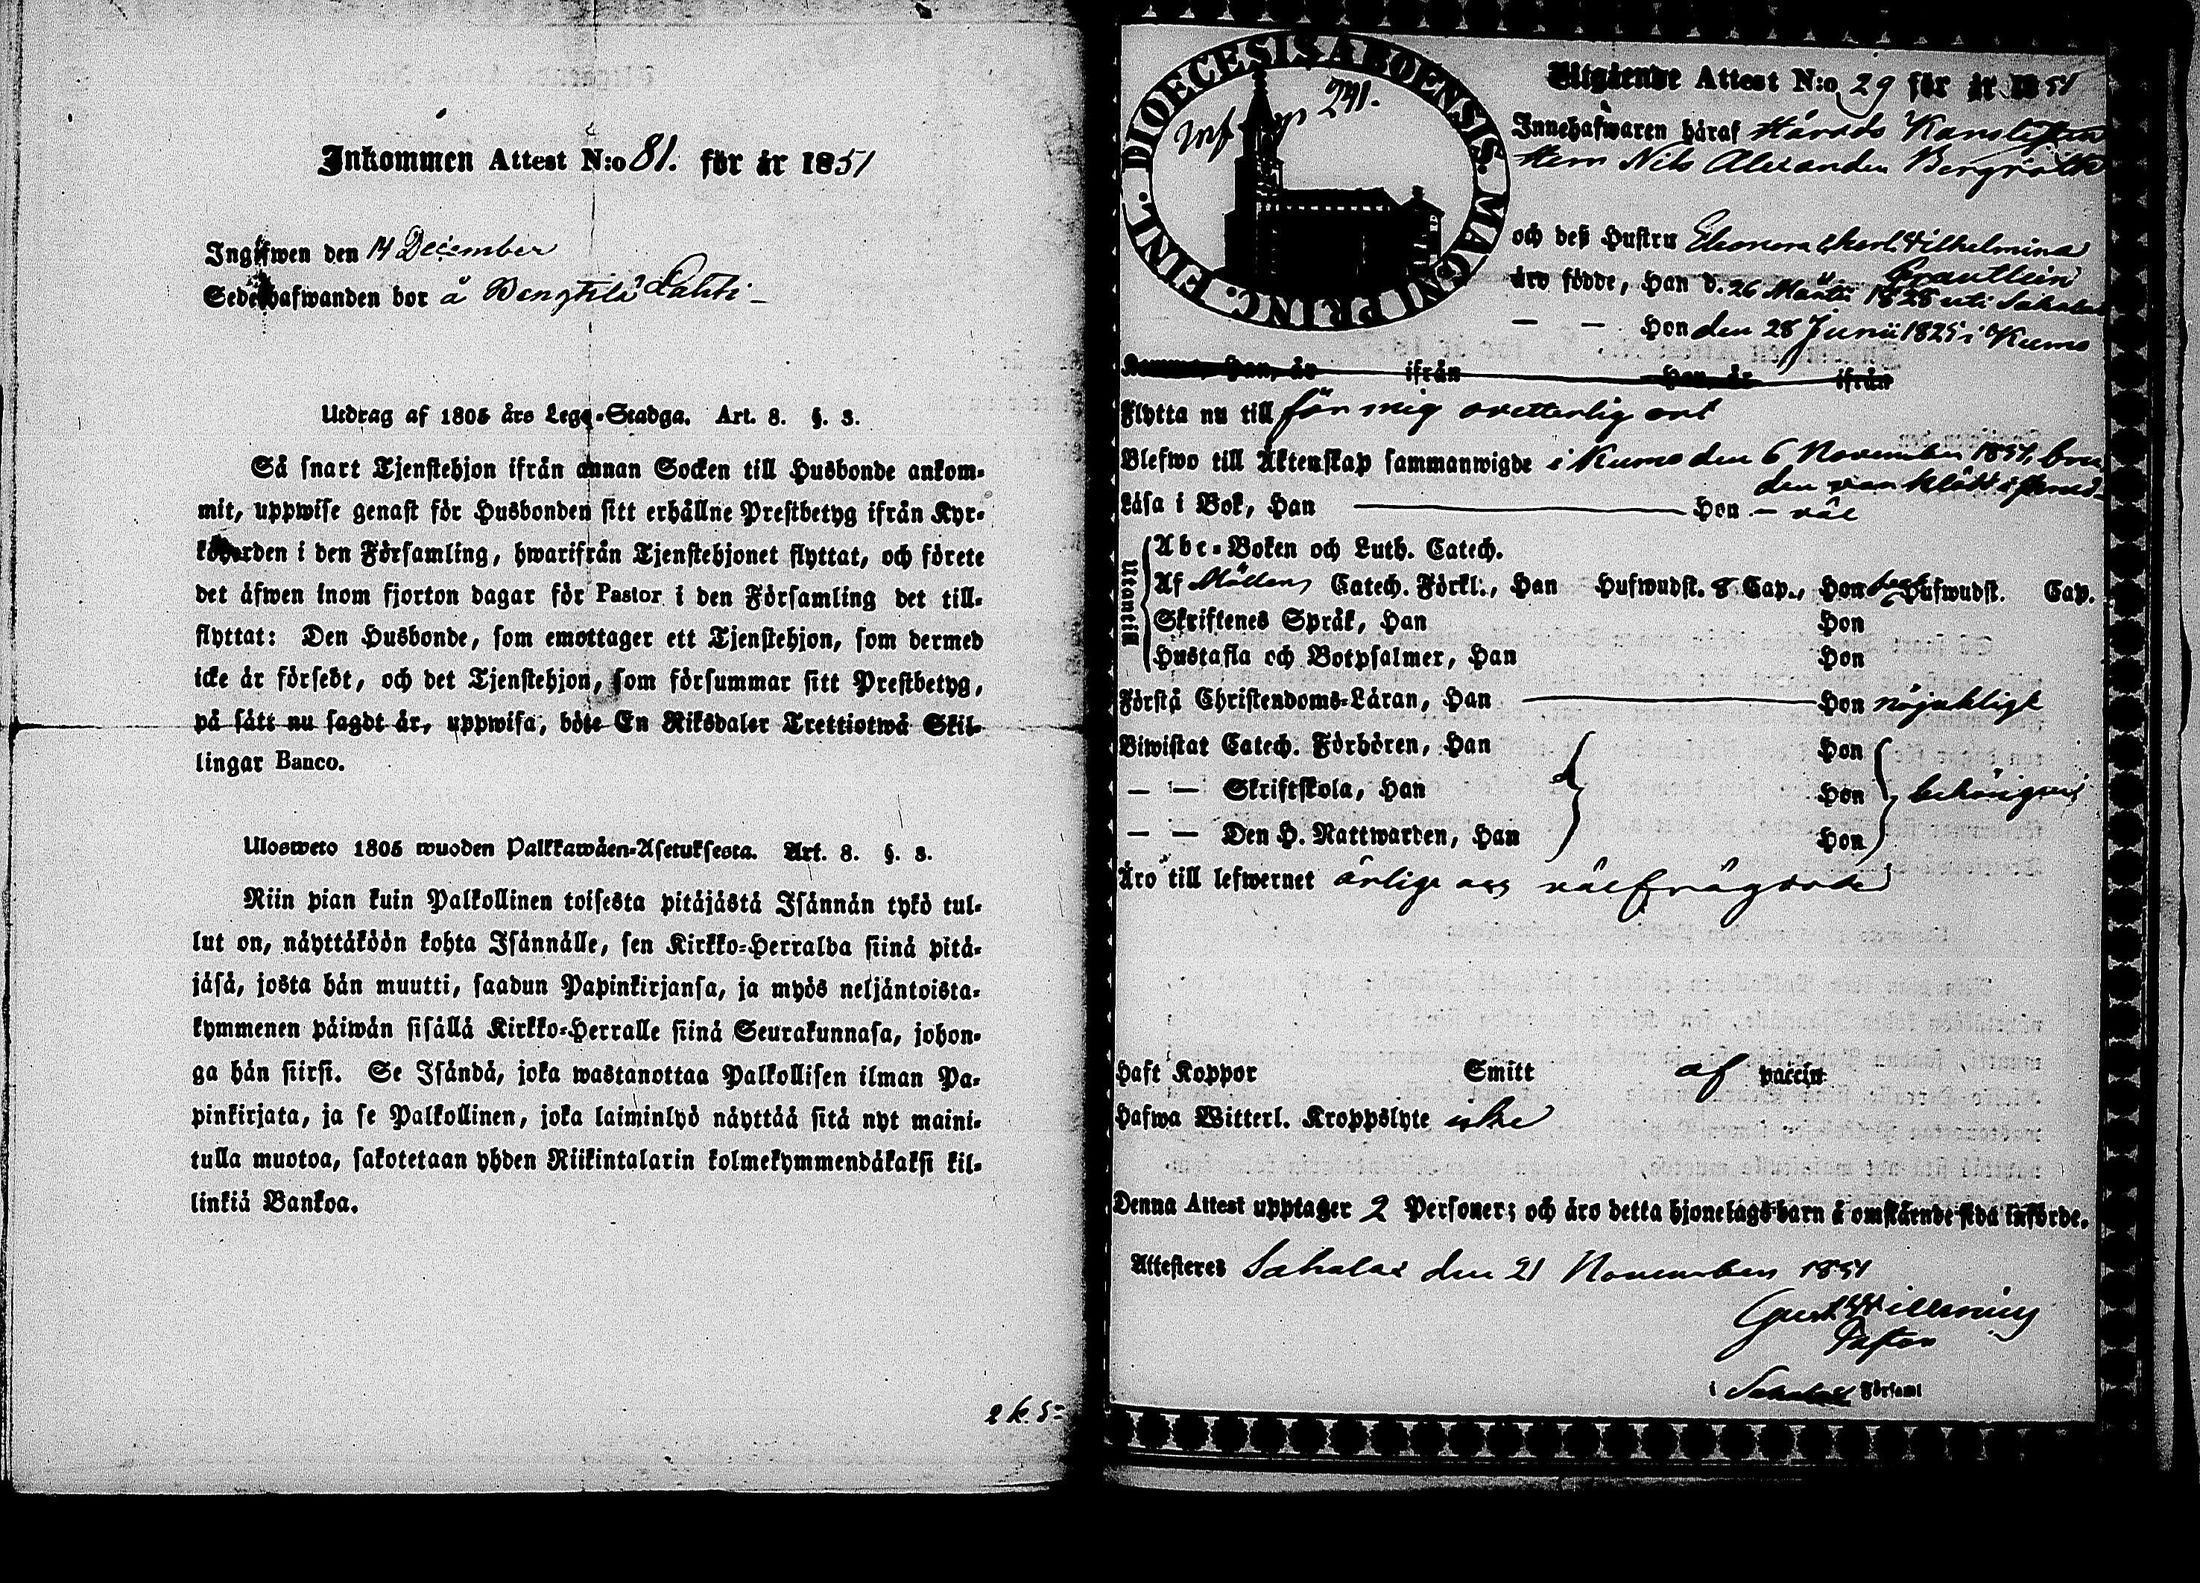 Inkommen Attest N:o 81. för år 1851
Ingifwen den 14 December
Sedelhafwanden bor å Bengtilä Lahti –
Utdrag af 1805 års Lego-Stadga. Art. 8. §. 3.
Så snart Tjenstehjon ifrån annan Socken till Husbonde ankom-
mit, uppwise genast för Husbonden sitt erhållne Prestbetyg ifrån Kyr-
koherden i den Församling, hwarifrån Tjenstehjonet flyttat, och förete
det äfwen inom fjorton dagar för Pastor i den Församling det till-
flyttat: Den Husbonde, som emottager ett Tjenstehjon, som dermed
icke är försedt, och det Tjenstehjon, som försummar sitt Prestbetyg,
på sätt nu sagdt är, uppwisa, böte En Riksdaler Trettiotwå Skil-
lingar Banco.
Ulosweto 1805 wuoden Palkkawäen-Asetuksesta. Art. 8. §. 3.
Niin pian kuin Palkollinen toisesta pitäjästä Isännän tykö tul-
lut on, näyttäköön kohta Isännälle, sen Kirkko-Herralda siinä pitä-
jäsä, josta hän muutti, saadun Papinkirjansa, ja myös neljäntoista-
kymmenen päiwän sisällä Kirkko-Herralle siinä Seurakunnasa, johon-
ga hän siirsi. Se Isändä, joka wastanottaa Palkollisen ilman Pa-
pinkirjata, ja se Palkollinen, joka laiminlyö näyttää sitä nyt maini-
tulla muotoa, sakotetaan yhden Riikintalarin kolmekymmendäkaksi kil-
linkiä Bankoa.
2 k. S:
DIOECESIS ABOENSIS. MAGNI PRINC. FINL.
Inf p 241.
Utgående Attest N:o 29 för år 1851
Innehafwaren häraf Härads Kanslisten
Herr Nils Alexander Bergroth
och deß Hustru Eleonora Charl. Vilhelmina
Grautlein
äro födde, Han d. 26 Martii 1828 uti Sahalax
— — Hon den 28 Junii 1825 i Kumo
Komma, Han, år ifrån Hon, år ifrån
Flytta nu till för mig ovetterlig ort
Blefwo till Äktenskap sammanwigde i Kumo den 6 November 1851, bru
den var klädd i
Läsa i Bok, Han — Hon – väl
Utantill
Abc-Boken och Luth. Catech.
Af Möllers Catech. Förkl., Han Hufwudst. 8 Cap., Hon Hufwudst. Cap.
Skriftenes Språk, Han Hon
Hustafla och Botpsalmer, Han Hon
Förstå Christendoms-Läran, Han — Hon nöjaktligt
Biwistat Catech. Förhören, Han Hon
— — Skriftskola, Han Hon behörigen
— — Den H. Nattwarden, Han Hon
Äro till lefwernet ärlige och välfrägdade
Haft Koppor Smitt af vaccin
Hafwa Witterl. Kroppslyte icke
Denna Attest upptager 2 Personer; och äro detta hjonelags barn å omstående sida införde.
Attesteres Sahalax den 21 November 1851
Pastor
i Sahalax Förfaml